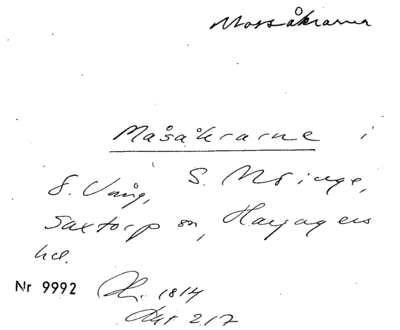 Mossåkrarna
Måsåkrarne i
S. Vång, S. Möinge,
Saxtorp sn, Harjagers
hd.
Nr 9992 1814
Akt 217